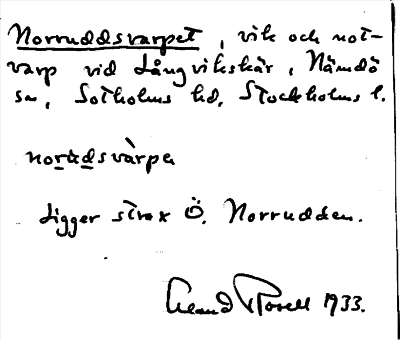 Norruddsvarpet, vik och not-
varp vid Långvikskär, Nämdö
sn, Sotholms hd, Stockholms l.
norùdsvàrpe
Ligger strax Ö. Norrudden.
Erland Rosell 1933.